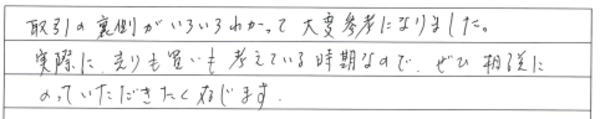 取引の裏側がいろいろわかって大変参考になりました。
実際に、売りも買いも考えている時期なので、ぜひ相談に
のっていただきたく存じます。